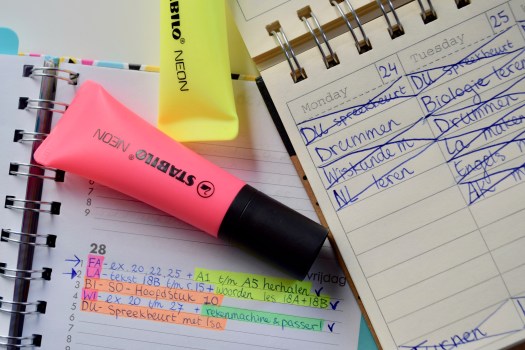 STABILO NEON
STABILO NEON
7
8
9
28
vrijdag
1 FA - ex. 20, 22, 25 + A1 t/m A5 herhalen
2 LA - tekst 18B t/m r.15 + woorden les 18A + 18B
3 BI - SO - Hoofdstuk 10
4 WI - ex 20 t/m 27 + rekenmachine & passer!
5 DU - Spreekbeurt met Isa
6
7
8
9
Monday 24
DU spreekbeurt
Drummen
Wiskunde m
NL leren
Tuesday 25
DU spreekbeurt
Biologie leren
Drummen
La maken
Engels